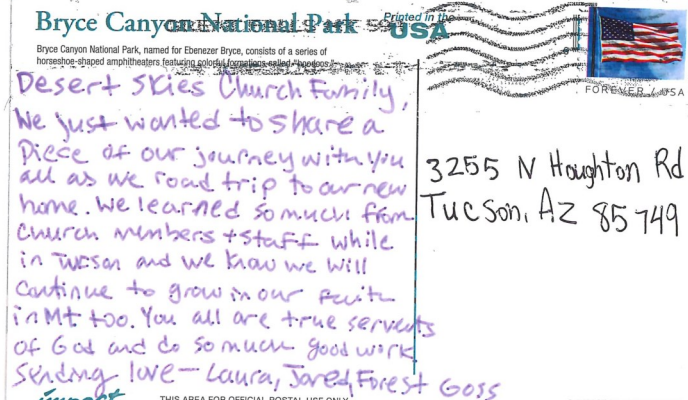 Bryce Canyon National Park
Printed in the
USA
Bryce Canyon National Park, named for Ebenezer Bryce, consists of a series of
horseshoe-shaped amphitheaters featuring colorful formations called "hoodoos."
FOREVER / USA
Desert Skies Church Family,
We just wanted to share a
piece of our journey with you
all as we road trip to our new
home. We learned so much from
church members + staff while
in Tucson and we know we will
continue to grow in our faith
in Mt too. You all are true servants
of God and do so much good work
Sending love - Laura, Jared, Forest Goss
3255 N Houghton Rd
Tucson, Az 85749
impact
THIS AREA FOR OFFICIAL POSTAL USE ONLY